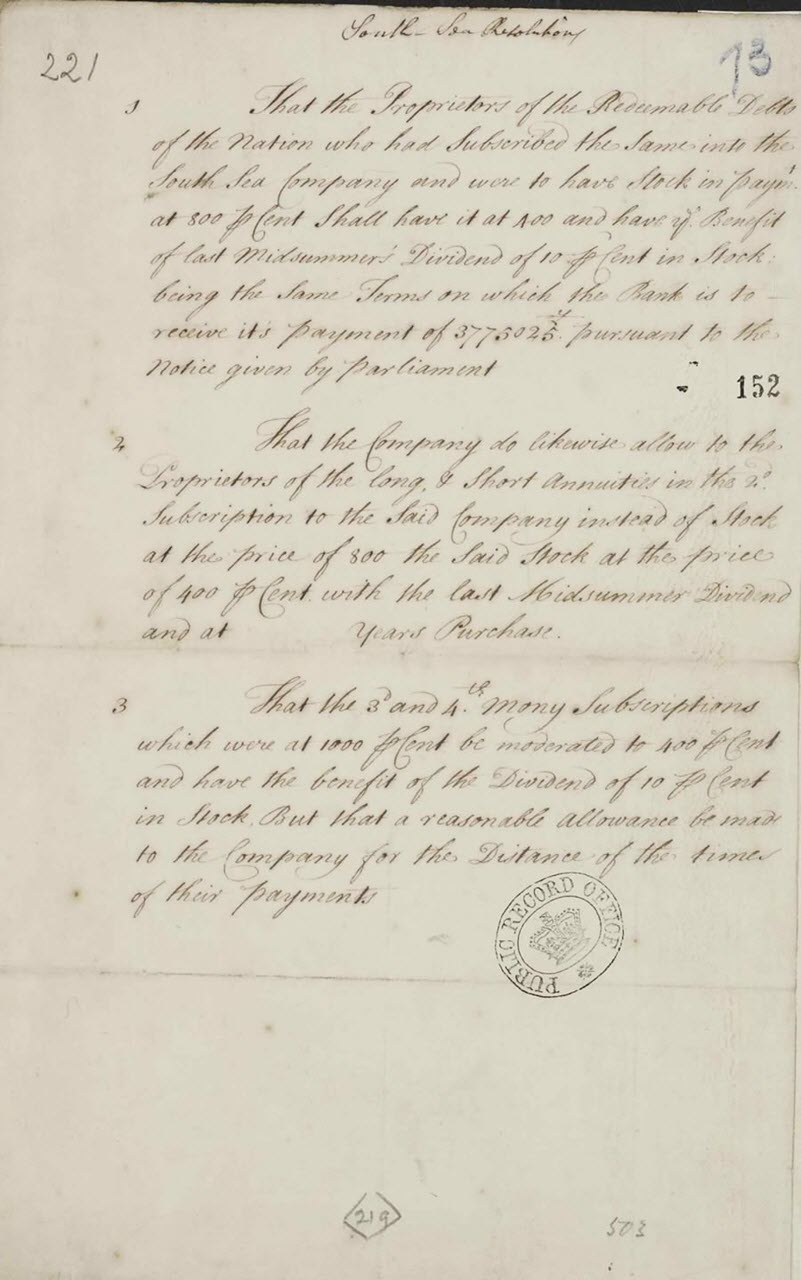 South-Sea Resolutions
221
73
1 That the Proprietors of the Redeemable Debts
of the Nation who had Subscribed the Same into the
South Sea Company and were to have Stock in paymt.
at 800 P Cent Shall have it at 400 and have ye. Benefit
of last Midsummer's Dividend of 10 P Cent in Stock.
being the Same Terms on which the Bank is to
receive it's payment of 3775025 pursuant to the
Notice given by Parliament
152
2 That the Company do likewise allow to the
Proprietors of the long, & Short Annuities in the 2d.
Subscription to the Said Company instead of Stock
at the price of 800 the Said Stock at the price
of 400 P Cent. with the last Midsummer Dividend
and at Years Purchase.
3 That the 3d and 4th. Mony Subscriptions
which were at 1000 P Cent be moderated to 400 P Cent
and have the benefit of the Dividend of 10 P Cent
in Stock. But that a reasonable Allowance be made
to the Company for the Distance of the times
of their payments
PUBLIC RECORD OFFICE
219
503